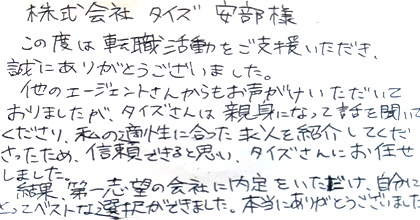 株式会社 タイズ 安部様
この度は転職活動をご支援いただき、
誠にありがとうございました。
他のエージェントさんからもお声がけいただいて
おりましたが、タイズさんは親身になって話を聞いて
くださり、私の適性に合った求人を紹介してくだ
さったため、信頼できると思い、タイズさんにお任せ
しました。
結果、第一志望の会社に内定をいただけ、自分に
とってベストな選択ができました。本当にありがとうございました